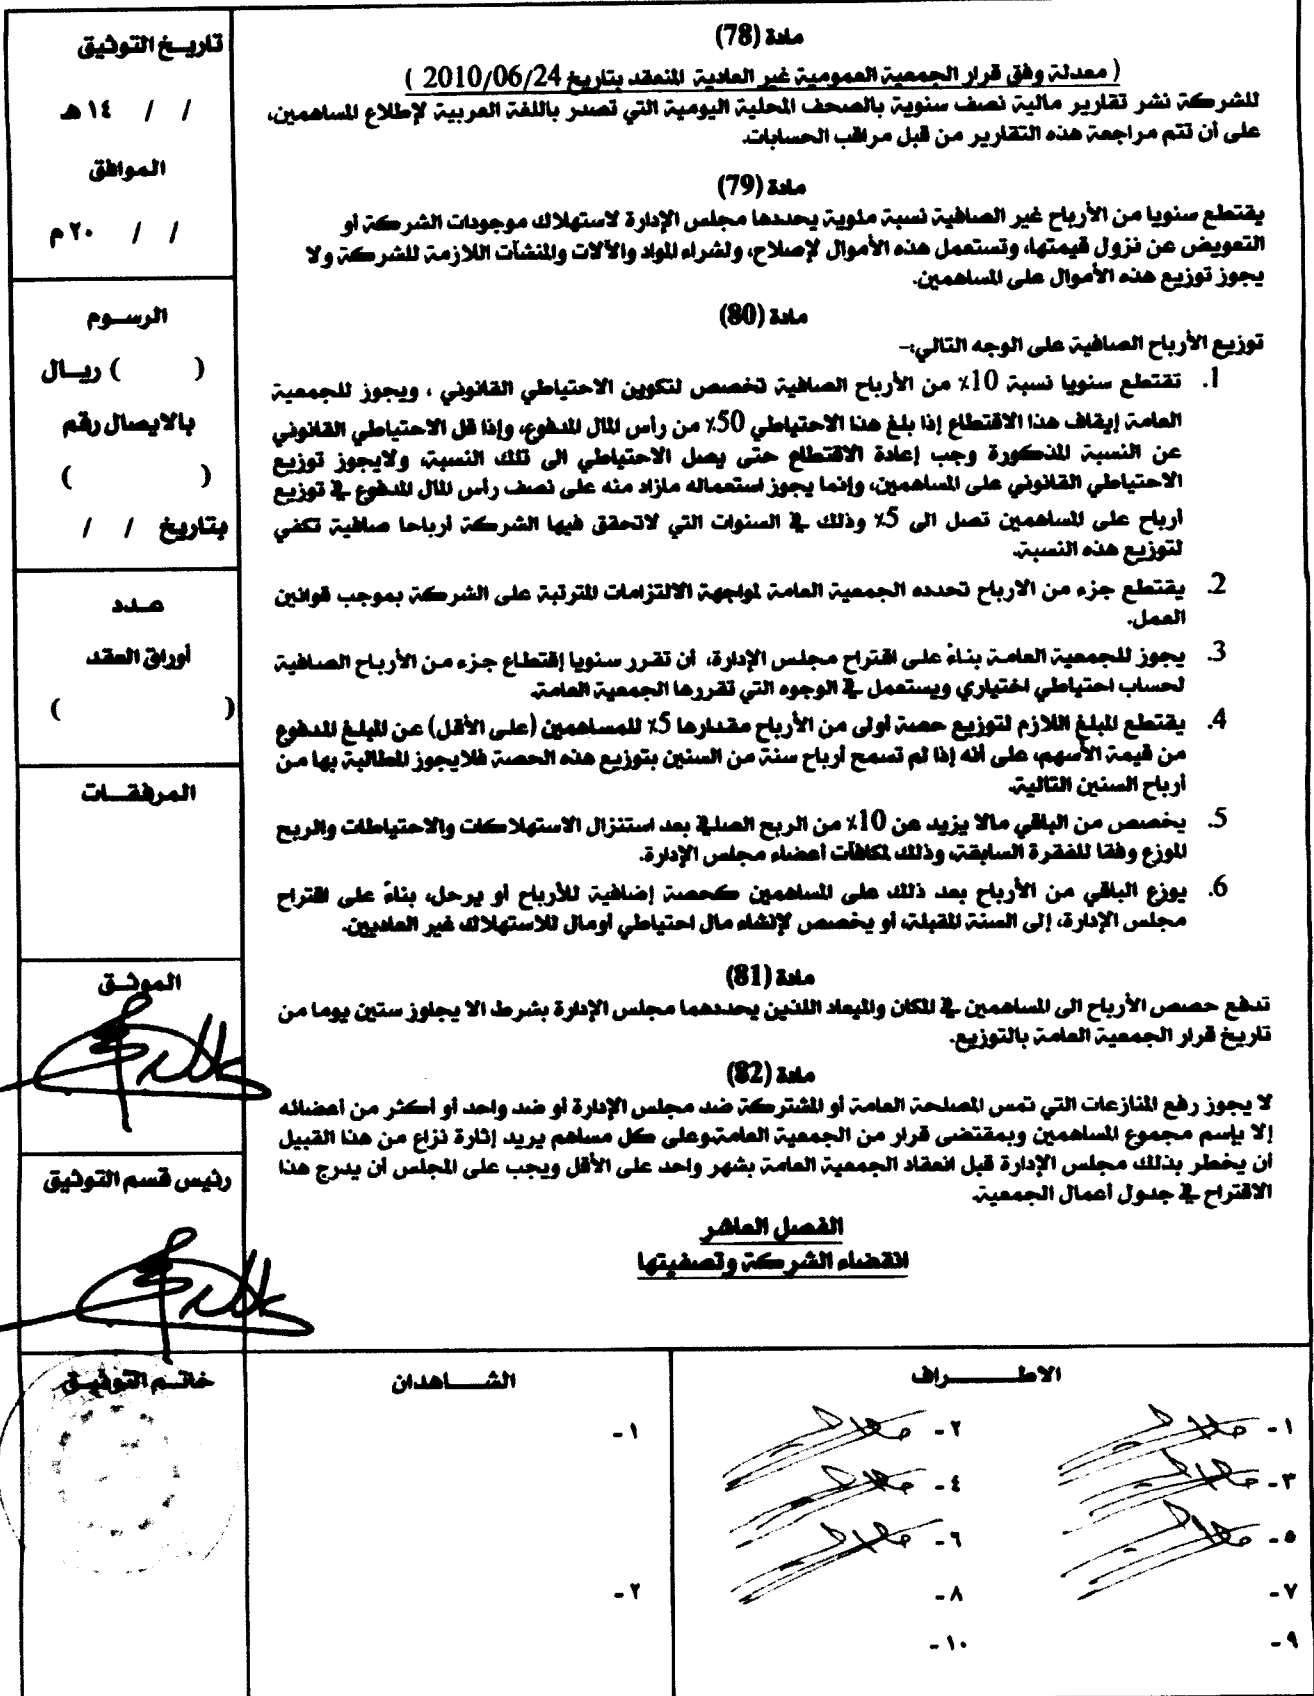 مادة (78)
( معدلة وفق قرار الجمعية العمومية غير العادية المنعقد بتاريخ 2010/06/24 )
للشركة نشر تقارير مالية نصف سنوية بالصحف المحلية اليومية التي تصدر باللغة العربية لإطلاع المساهمين،
على أن تتم مراجعة هذه التقارير من قبل مراقب الحسابات.
مادة (79)
يقتطع سنويا من الأرباح غير الصافية نسبة مئوية يحددها مجلس الإدارة لاستهلاك موجودات الشركة أو
التعويض عن نزول قيمتها، وتستعمل هذه الأموال لإصلاح، ولشراء المواد والآلات والمنشآت اللازمة للشركة ولا
يجوز توزيع هذه الأموال على المساهمين.
مادة (80)
توزيع الأرباح الصافية على الوجه التالي:-
1. تقتطع سنويا نسبة 10٪ من الأرباح الصافية تخصص لتكوين الاحتياطي القانوني ، ويجوز للجمعية
العامة إيقاف هذا الاقتطاع إذا بلغ هذا الاحتياطي 50٪ من رأس المال المدفوع، وإذا قل الاحتياطي القانوني
عن النسبة المذكورة وجب إعادة الاقتطاع حتى يصل الاحتياطي الى تلك النسبة، ولايجوز توزيع
الاحتياطي القانوني على المساهمين، وإنما يجوز استعماله مازاد منه على نصف رأس المال المدفوع في توزيع
أرباح على المساهمين تصل الى 5٪ وذلك في السنوات التي لاتحقق فيها الشركة أرباحا صافية تكفي
لتوزيع هذه النسبة.
2. يقتطع جزء من الارباح تحدده الجمعية العامة لمواجهة الالتزامات المترتبة على الشركة بموجب قوانين
العمل.
3. يجوز للجمعية العامة بناءً على اقتراح مجلس الإدارة، أن تقرر سنويا إقتطاع جزء من الأرباح الصافية
لحساب احتياطي اختياري ويستعمل في الوجوه التي تقررها الجمعية العامة.
4. يقتطع المبلغ اللازم لتوزيع حصة أولى من الأرباح مقدارها 5٪ للمساهمين (على الأقل) عن المبلغ المدفوع
من قيمة الأسهم، على أنه إذا لم تسمح أرباح سنة من السنين بتوزيع هذه الحصة فلايجوز المطالبة بها من
أرباح السنين التالية.
5. يخصص من الباقي مالا يزيد عن 10٪ من الربح الصافي بعد استنزال الاستهلاكات والاحتياطات والربح
الموزع وفقا للفقرة السابقة، وذلك لمكافآت أعضاء مجلس الإدارة.
6. يوزع الباقي من الأرباح بعد ذلك على المساهمين كحصة إضافية للأرباح أو يرحل، بناءً على اقتراح
مجلس الإدارة، إلى السنة المقبلة، أو يخصص لإنشاء مال احتياطي أومال للاستهلاك غير العاديين.
مادة (81)
تدفع حصص الأرباح الى المساهمين في المكان والميعاد اللذين يحددهما مجلس الإدارة بشرط الا يجاوز ستين يوما من
تاريخ قرار الجمعية العامة بالتوزيع.
مادة (82)
لا يجوز رفع المنازعات التي تمس المصلحة العامة أو المشتركة ضد مجلس الإدارة أو ضد واحد أو أكثر من أعضائه
إلا بإسم مجموع المساهمين وبمقتضى قرار من الجمعية العامة،وعلى كل مساهم يريد إثارة نزاع من هذا القبيل
أن يخطر بذلك مجلس الإدارة قبل انعقاد الجمعية العامة بشهر واحد على الأقل ويجب على المجلس أن يدرج هذا
الاقتراح في جدول أعمال الجمعية.
الفصل العاشر
انقضاء الشركة وتصفيتها
تاريـخ التوثيق
/ / ١٤ هـ
الموافق
/ / ٢٠ م
الرســوم
( ) ريــال
بالايصال رقم
( )
بتاريخ / /
عــدد
أوراق العقد
( )
المرفقــات
الموثــق
رئيس قسم التوثيق
خاتــم التوثيــق
الشـــاهدان
١ -
٢ -
الاطـــــــراف
١ - ٢ -
٣ - ٤ -
٥ - ٦ -
٧ - ٨ -
٩ - ١٠ -